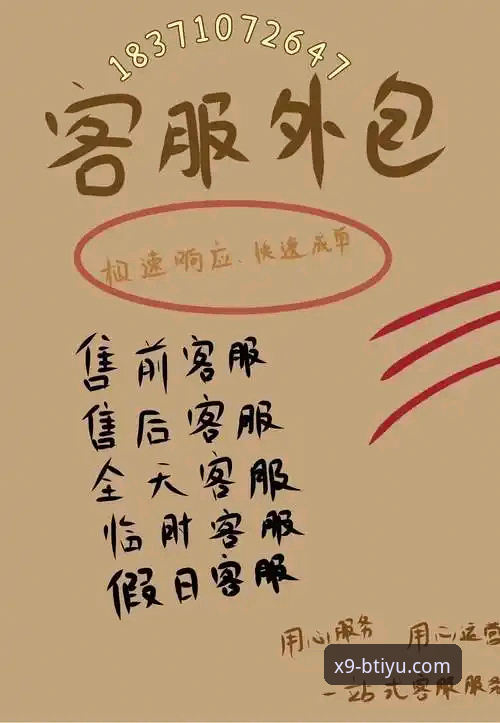 18371072647
客服外包
极速响应、快速成单
售前客服
售后客服
全天客服
临时客服
假日客服
用心服务 用心运营
x9-btiyu.com
一站式客服服务